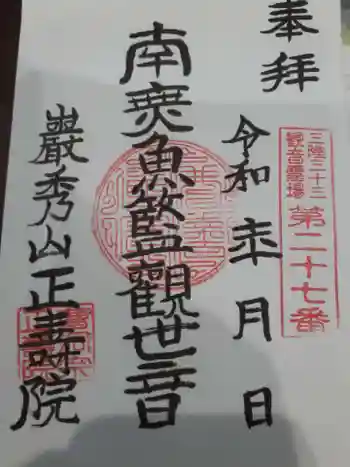 奉拝
三陸三十三
観音霊場
第二十七番
令和 年 月 日
南無魚籃觀世音
巖秀山正壽院